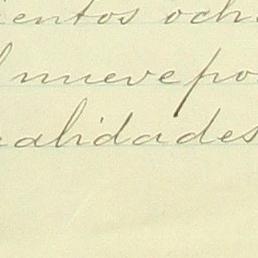 ientos och
l nueve po
alidades